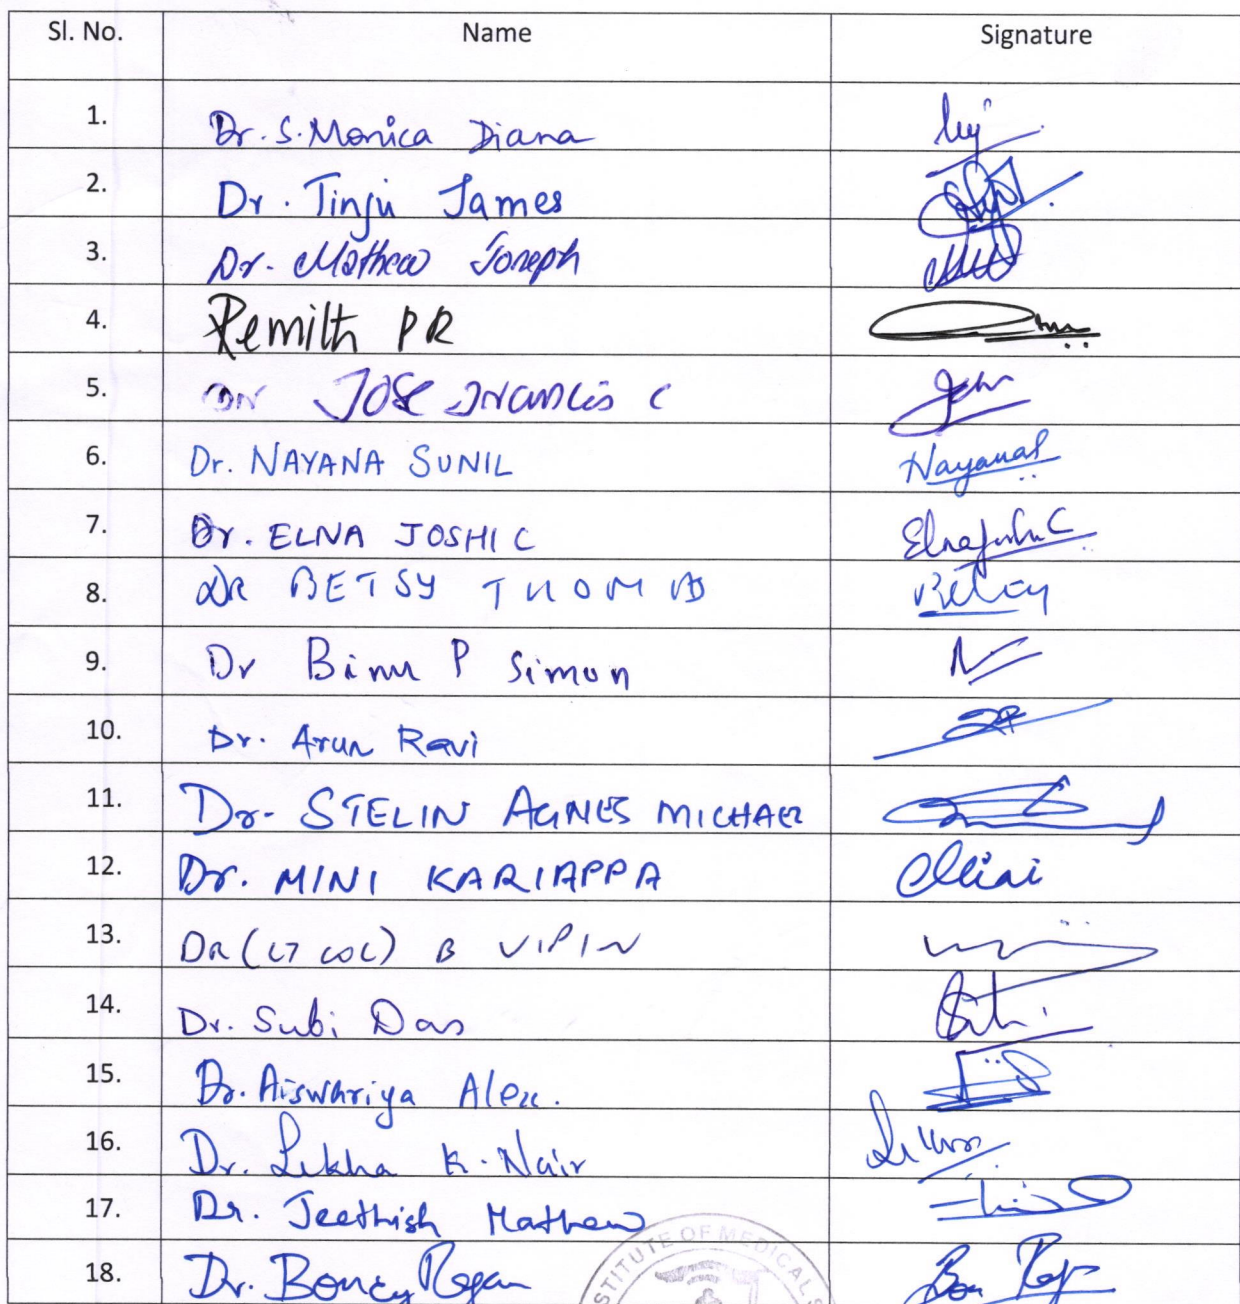 Sl. No. Name Signature
1. Dr. S. Monica Diana
2. Dr. Tinju James
3. Dr. Mathew Joseph
4. Remith PR
5. Dr JOSE Francis C
6. Dr. NAYANA SUNIL NayanaS
7. Dr. ELNA JOSHI C Elna Joshi C
8. DR BETSY THOMAS Betsy
9. Dr Binu P Simon
10. Dr. Arun Ravi
11. Dr. STELIN AGNES MICHAEL
12. Dr. MINI KARIAPPA Mini
13. DR (LT COL) B VIPIN
14. Dr. Subi Das
15. Dr. Aiswariya Alex.
16. Dr. Lekha K. Nair
17. Dr. Jeethish Mathew
18. Dr. Boney Regan
STITUTE OF MEDICAL S